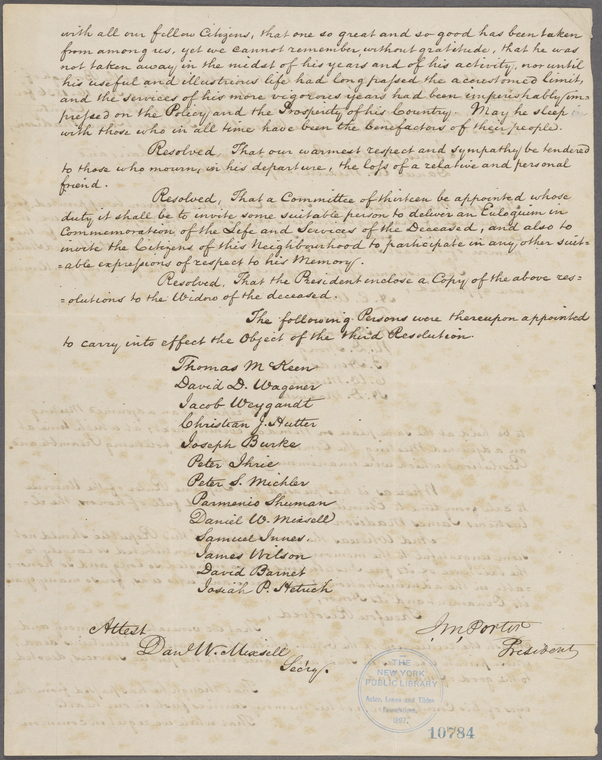 with all our fellow Citizens, that one so great and so good has been taken
from among us, yet we cannot remember, without gratitude, that he was
not taken away in the midst of his years and of his activity, nor until
his useful and illustrious life had long passed the accustomed limit,
and the services of his more vigorous years had been imperishably im=
pressed on the Policy and the Prosperity of his Country. May he sleep
with those who in all time have been the benefactors of their people.
Resolved, That our warmest respect and sympathy be tendered
to those who mourn, in his departure, the loss of a relative and personal
friend.
Resolved, That a Committee of thirteen be appointed whose
duty it shall be to invite some suitable person to deliver an Eulogium in
Commemoration of the Life and Services of the Deceased, and also to
invite the Citizens of this Neighbourhood to participate in any other suit=
=able expressions of respect to his Memory.
Resolved, That the President enclose a Copy of the above res=
=olutions to the Widow of the deceased.
The following Persons were thereupon appointed
to carry into effect the Object of the third Resolution.
Thomas McKeen
David D. Wagener
Jacob Weygandt
Christian J. Hutter
Joseph Burke
Peter Ihrie
Peter S. Michler
Parmenio Shuman
Daniel W. Mixsell
Samuel Innes.
James Wilson
David Barnet
Josiah P. Hetrich
Attest J M, Porter
Danl W. Mixsell President
Secry.
THE
NEW YORK
PUBLIC LIBRARY
Astor, Lenox and Tilden
Foundations,
1897.
10784